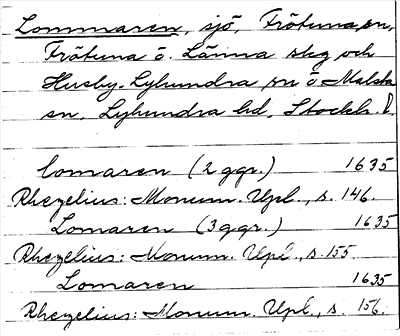 Lommaren, sjö, Frötuna sn,
Frötuna o. Länna skg och
Husby-Lyhundra sn o Malsta
sn. Lyhundra hd, Stockh. l.
lomaren (2 ggr.) 1635
Rhezelius: Monum. Upl., s. 146.
Lomaren (3 ggr.) 1635
Rhezelius: Monum. Upl., s. 155
Lomaren 1635
Rhezelius: Monum. Upl., s. 156.